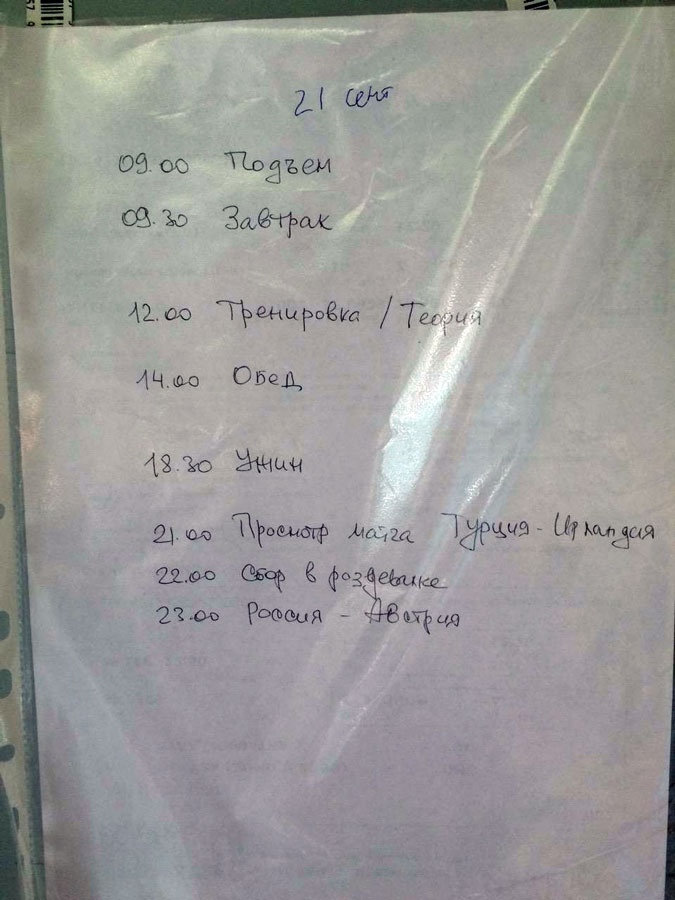 21 сент
09.00 Подъем
09.30 Завтрак
12.00 Тренировка / Теория
14.00 Обед
18.30 Ужин
21.00 Просмотр матча Турция - Ирландия
22.00 Сбор в роздевалке
23.00 Россия - Австрия